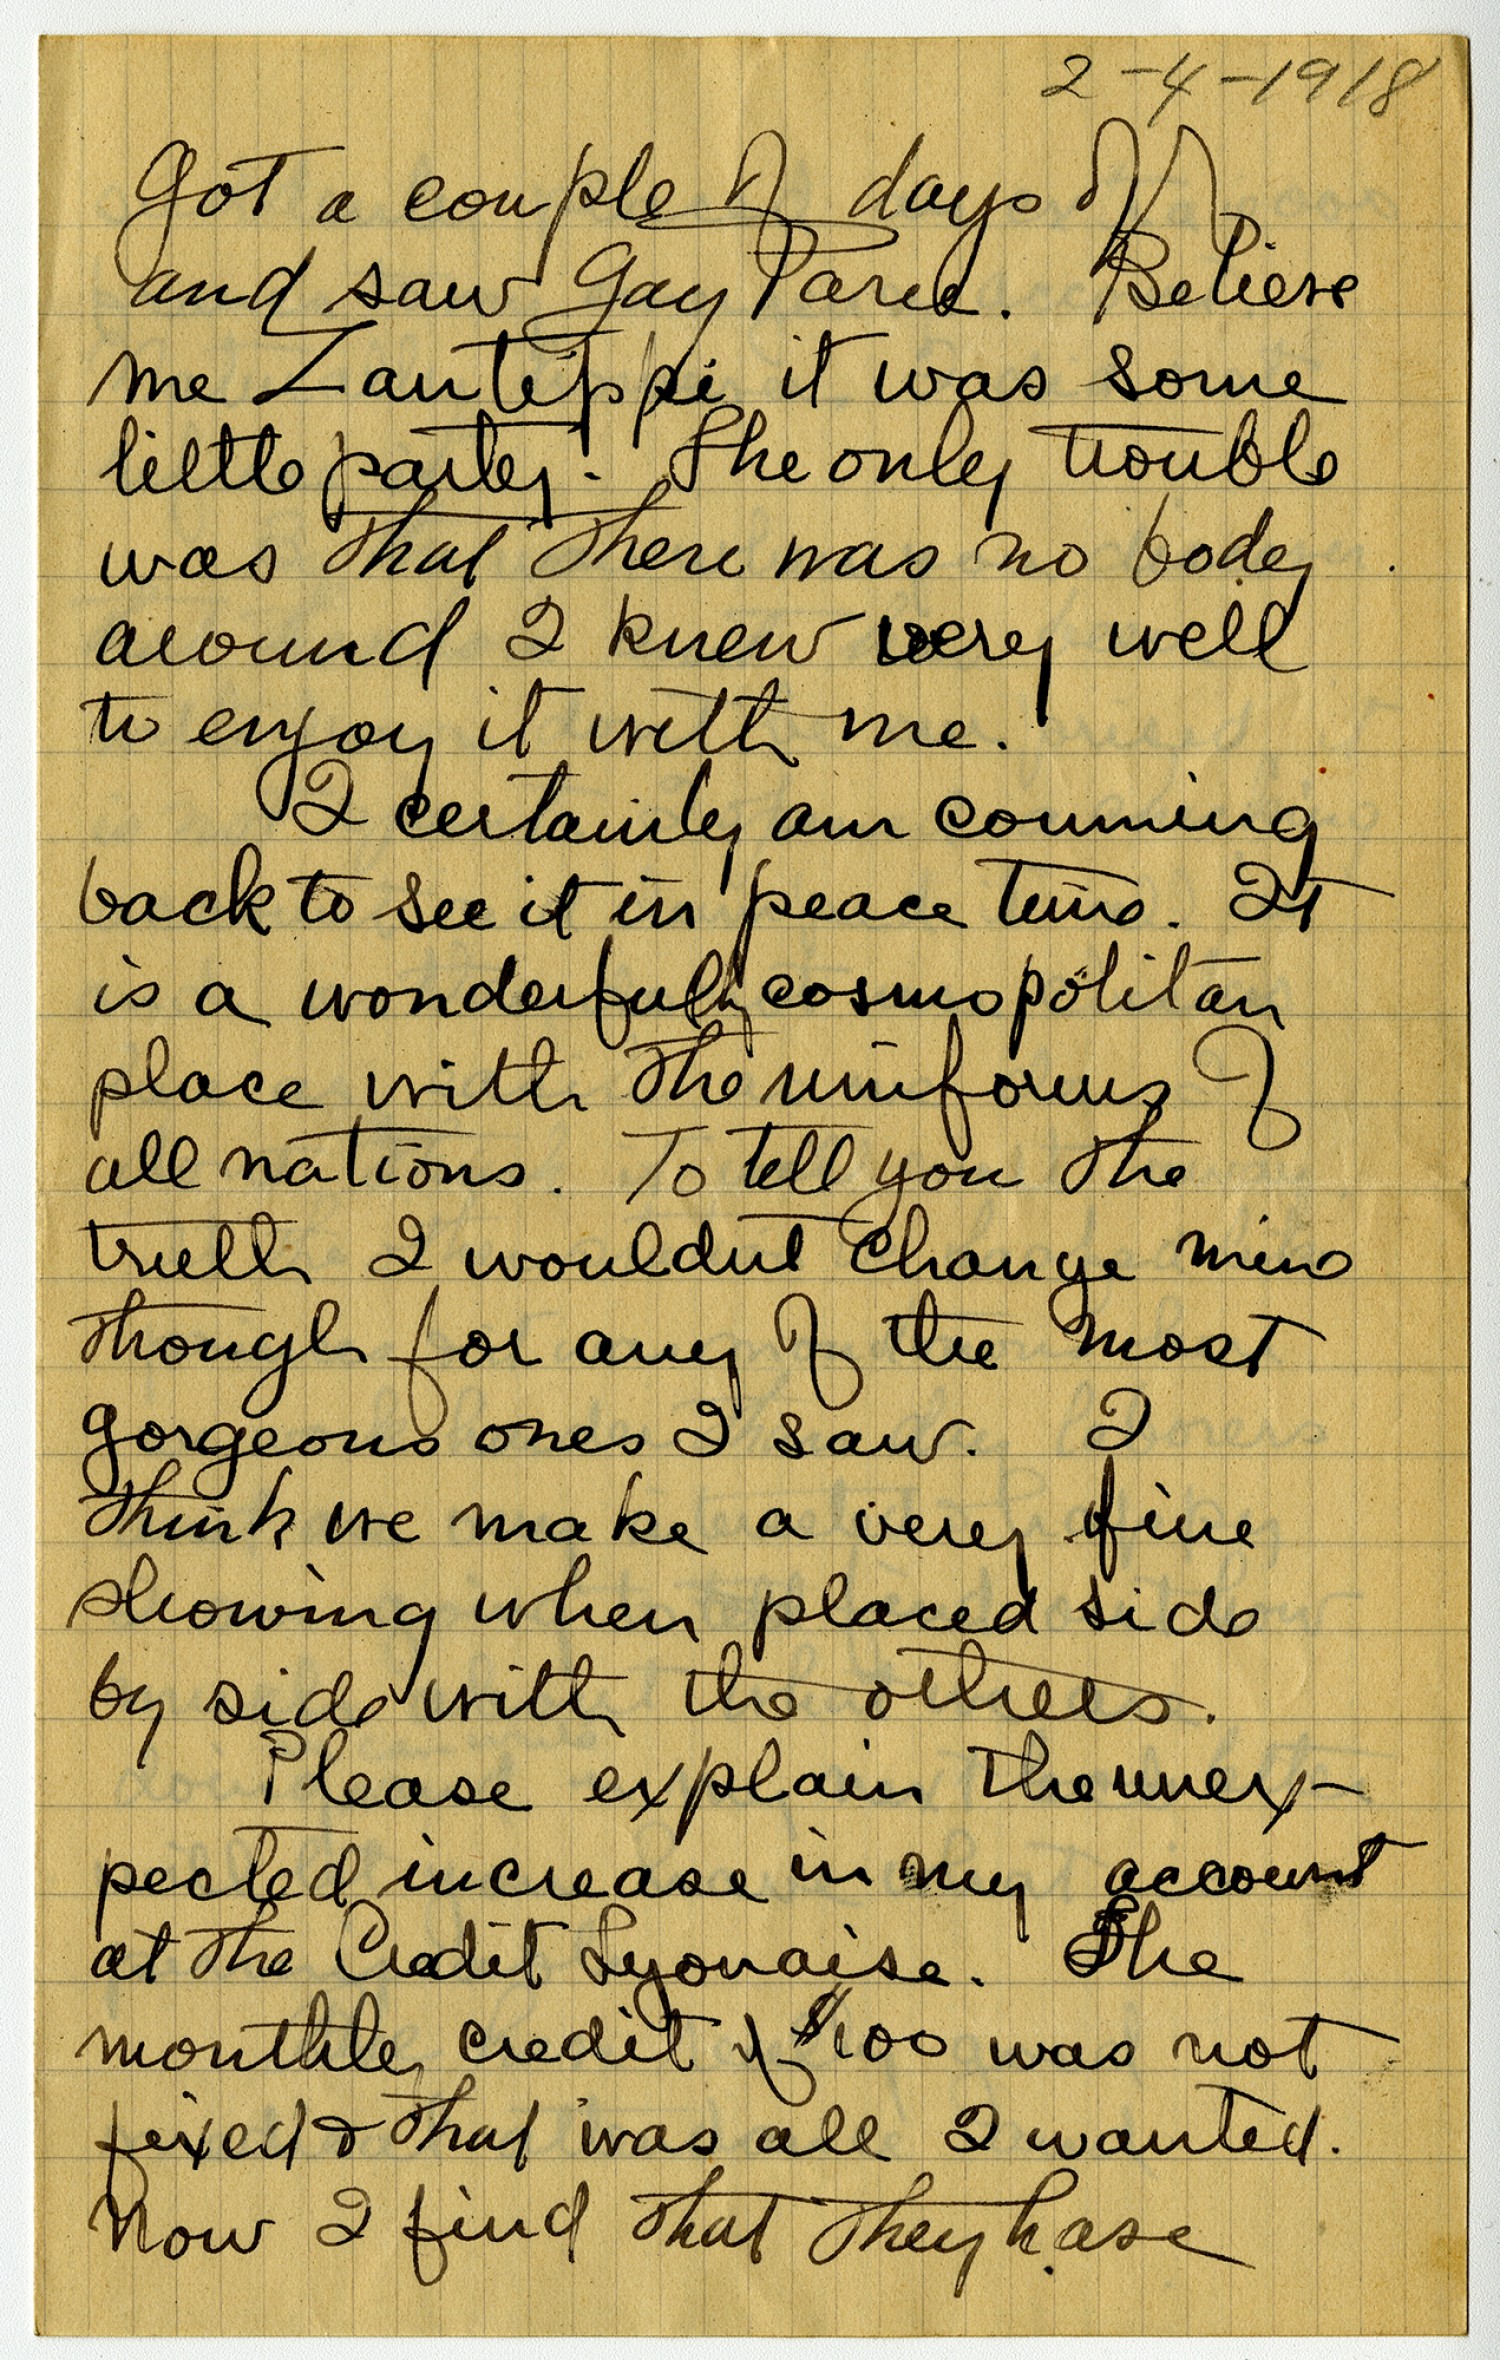 2-4-1918
Got a couple of days off
and saw Gay Paree. Believe
me Zantippi it was some
little party. The only trouble
was that there was no body
around I knew very well
to enjoy it with me.
I certainly am comming
back to see it in peace time. It
is a wonderfully cosmopolitan
place with the uniforms of
all nations. To tell you the
truth I wouldnt change mine
though for any of the most
gorgeous ones I saw. I
think we make a very fine
showing when placed side
by side with the others.
Please explain the unex-
pected increase in my account
at the Credit Lyonaise. The
monthly credit of $100 was not
fixed & that was all I wanted.
Now I find that they have